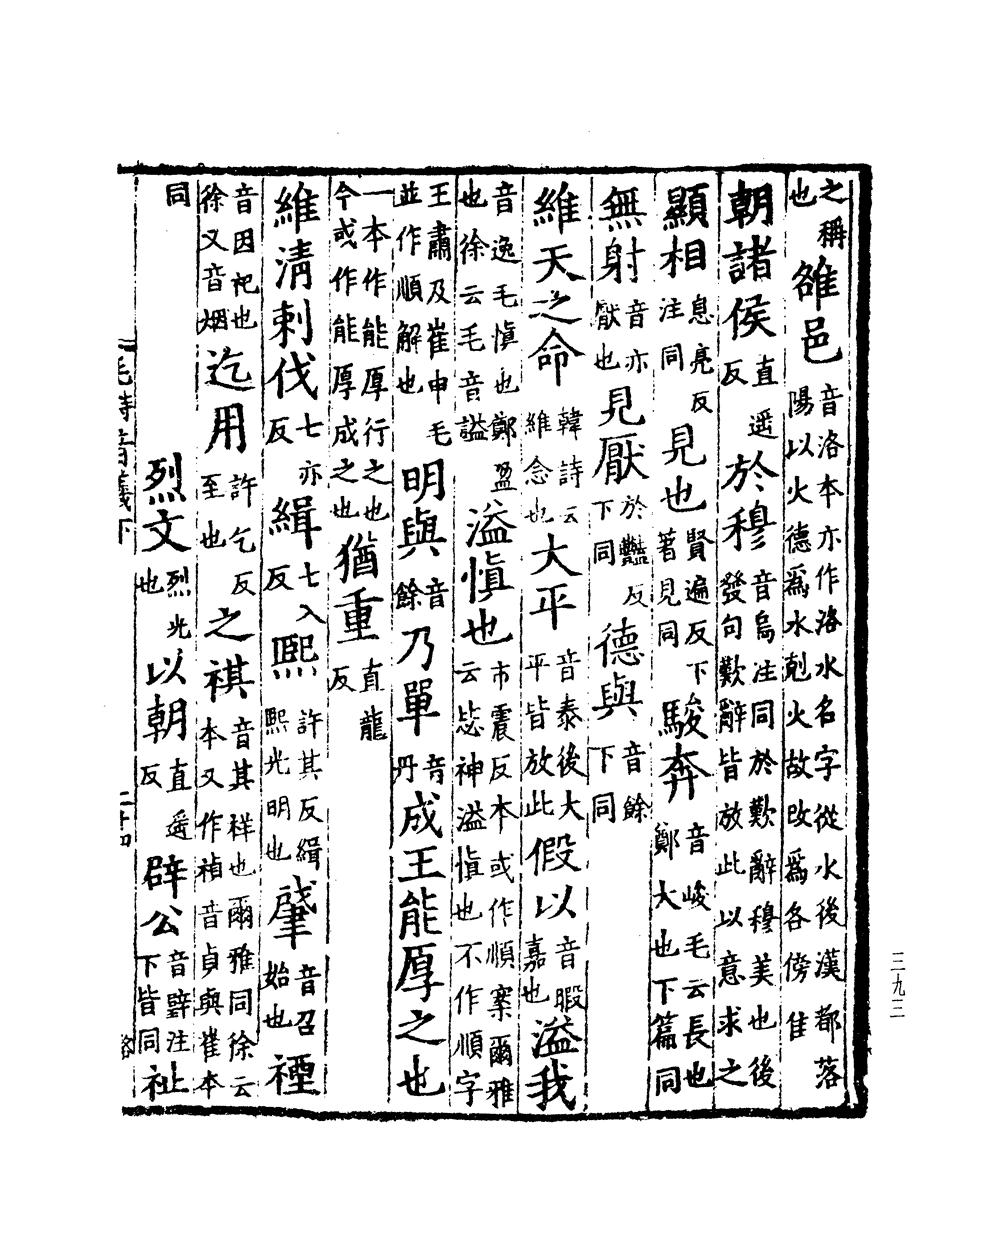 之稱也雒邑音洛本亦作洛水名字從水後漢都落陽以火德爲水剋火故改爲各傍隹
朝諸侯直遥反於穆音烏注同於歎辭穆美也後發句歎辭皆放此以意求之
顯相息亮反注同見也賢遍反下著見同駿奔音峻毛云長也鄭大也下篇同
無射音亦厭也見厭於豔反下同德與音餘下同
維天之命韓詩云維念也大平音泰後大平皆放此假以音暇嘉也溢我
音逸毛慎也鄭盈也徐云毛音謚溢慎也市震反本或作順案爾雅云毖神溢慎也不作順字
王肅及崔申毛並作順解也明與音餘乃單音丹成王能厚之也
一本作能厚行之也今或作能厚成之也猶重直龍反
維清刺伐七亦反緝七入反熙許其反緝熙光明也肇音召始也禋
音因祀也徐又音烟迄用許乞反至也之祺音其祥也爾雅同徐云本又作禎音貞與崔本
同烈文烈光也以朝直遥反辟公音辟注下皆同祉
毛詩音義下 二十四
三九三